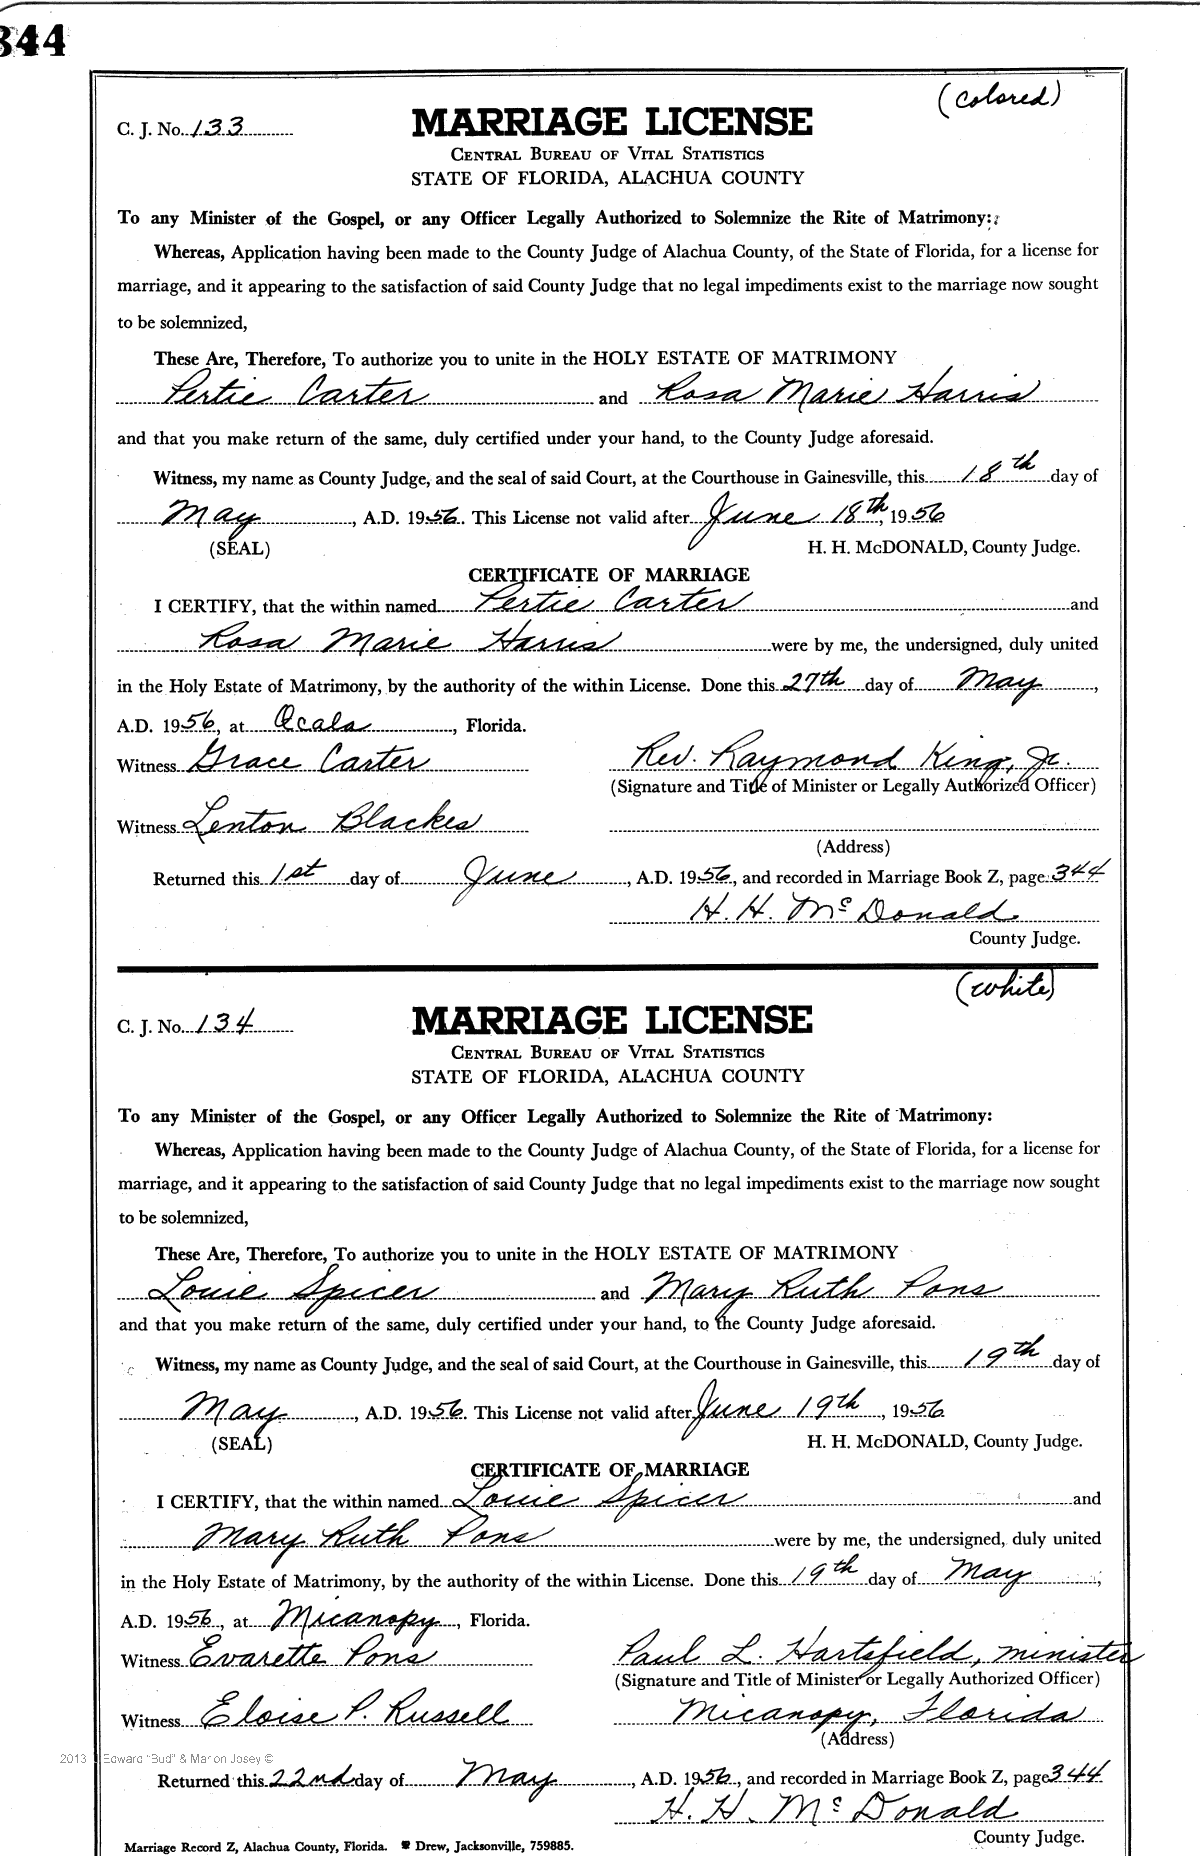 344
(colored)
C. J. No. 133
MARRIAGE LICENSE
CENTRAL BUREAU OF VITAL STATISTICS
STATE OF FLORIDA, ALACHUA COUNTY
To any Minister of the Gospel, or any Officer Legally Authorized to Solemnize the Rite of Matrimony:
Whereas, Application having been made to the County Judge of Alachua County, of the State of Florida, for a license for
marriage, and it appearing to the satisfaction of said County Judge that no legal impediments exist to the marriage now sought
to be solemnized,
These Are, Therefore, To authorize you to unite in the HOLY ESTATE OF MATRIMONY
Pertie Carter and Rosa Marie Harris
and that you make return of the same, duly certified under your hand, to the County Judge aforesaid.
Witness, my name as County Judge, and the seal of said Court, at the Courthouse in Gainesville, this 18th day of
May, A.D. 1956. This License not valid after June 18th, 1956
(SEAL) H. H. McDONALD, County Judge.
CERTIFICATE OF MARRIAGE
I CERTIFY, that the within named Pertie Carter and
Rosa Marie Harris were by me, the undersigned, duly united
in the Holy Estate of Matrimony, by the authority of the within License. Done this 27th day of May,
A.D. 1956, at Ocala, Florida.
Witness Grace Carter Rev. Raymond King, Jr.
(Signature and Title of Minister or Legally Authorized Officer)
Witness Lenton Blackes
(Address)
Returned this 1st day of June, A.D. 1956, and recorded in Marriage Book Z, page 344
H. H. McDonald
County Judge.
(white)
C. J. No. 134
MARRIAGE LICENSE
CENTRAL BUREAU OF VITAL STATISTICS
STATE OF FLORIDA, ALACHUA COUNTY
To any Minister of the Gospel, or any Officer Legally Authorized to Solemnize the Rite of Matrimony:
Whereas, Application having been made to the County Judge of Alachua County, of the State of Florida, for a license for
marriage, and it appearing to the satisfaction of said County Judge that no legal impediments exist to the marriage now sought
to be solemnized,
These Are, Therefore, To authorize you to unite in the HOLY ESTATE OF MATRIMONY
Louie Spicer and Mary Ruth Pons
and that you make return of the same, duly certified under your hand, to the County Judge aforesaid.
Witness, my name as County Judge, and the seal of said Court, at the Courthouse in Gainesville, this 19th day of
May, A.D. 1956. This License not valid after June 19th, 1956
(SEAL) H. H. McDONALD, County Judge.
CERTIFICATE OF MARRIAGE
I CERTIFY, that the within named Louie Spicer and
Mary Ruth Pons were by me, the undersigned, duly united
in the Holy Estate of Matrimony, by the authority of the within License. Done this 19th day of May,
A.D. 1956, at Micanopy, Florida.
Witness Evarette Pons Paul L. Hartsfield, minister
(Signature and Title of Minister or Legally Authorized Officer)
Witness Eloise P. Russell Micanopy, Florida
(Address)
2013 J Edward "Bud" & Marion Josey ©
Returned this 22nd day of May, A.D. 1956, and recorded in Marriage Book Z, page 344
H. H. McDonald
County Judge.
Marriage Record Z, Alachua County, Florida. Drew, Jacksonville, 759885.